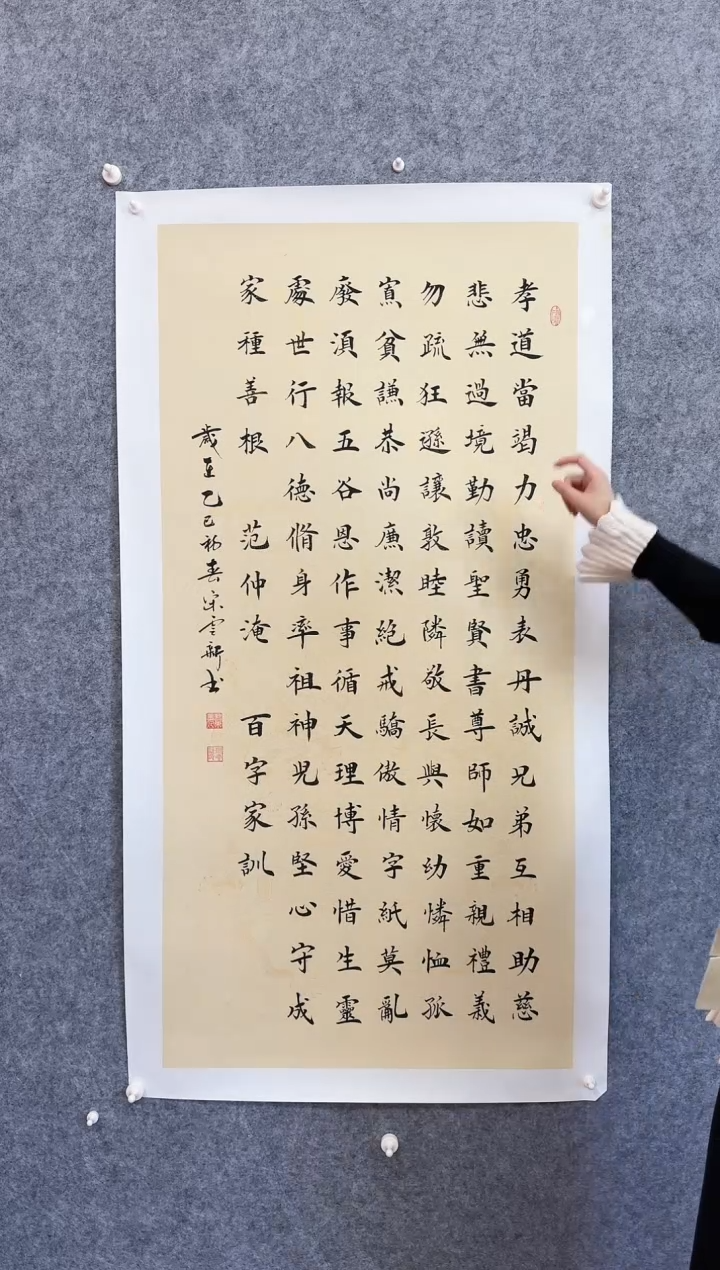 孝道當竭力忠勇表丹誠兄弟互相助慈
悲無過境勤讀聖賢書尊師如重親禮義
勿疏狂遜讓敦睦隣敬長與懷幼憐恤孤
寡貧謙恭尚廉潔絕戒驕傲情字紙莫亂
廢湏報五谷恩作事循天理博愛惜生靈
處世行八德脩身率祖神児孫堅心守成
家種善根 范仲淹 百字家訓
歲在乙巳初春宋雲新书